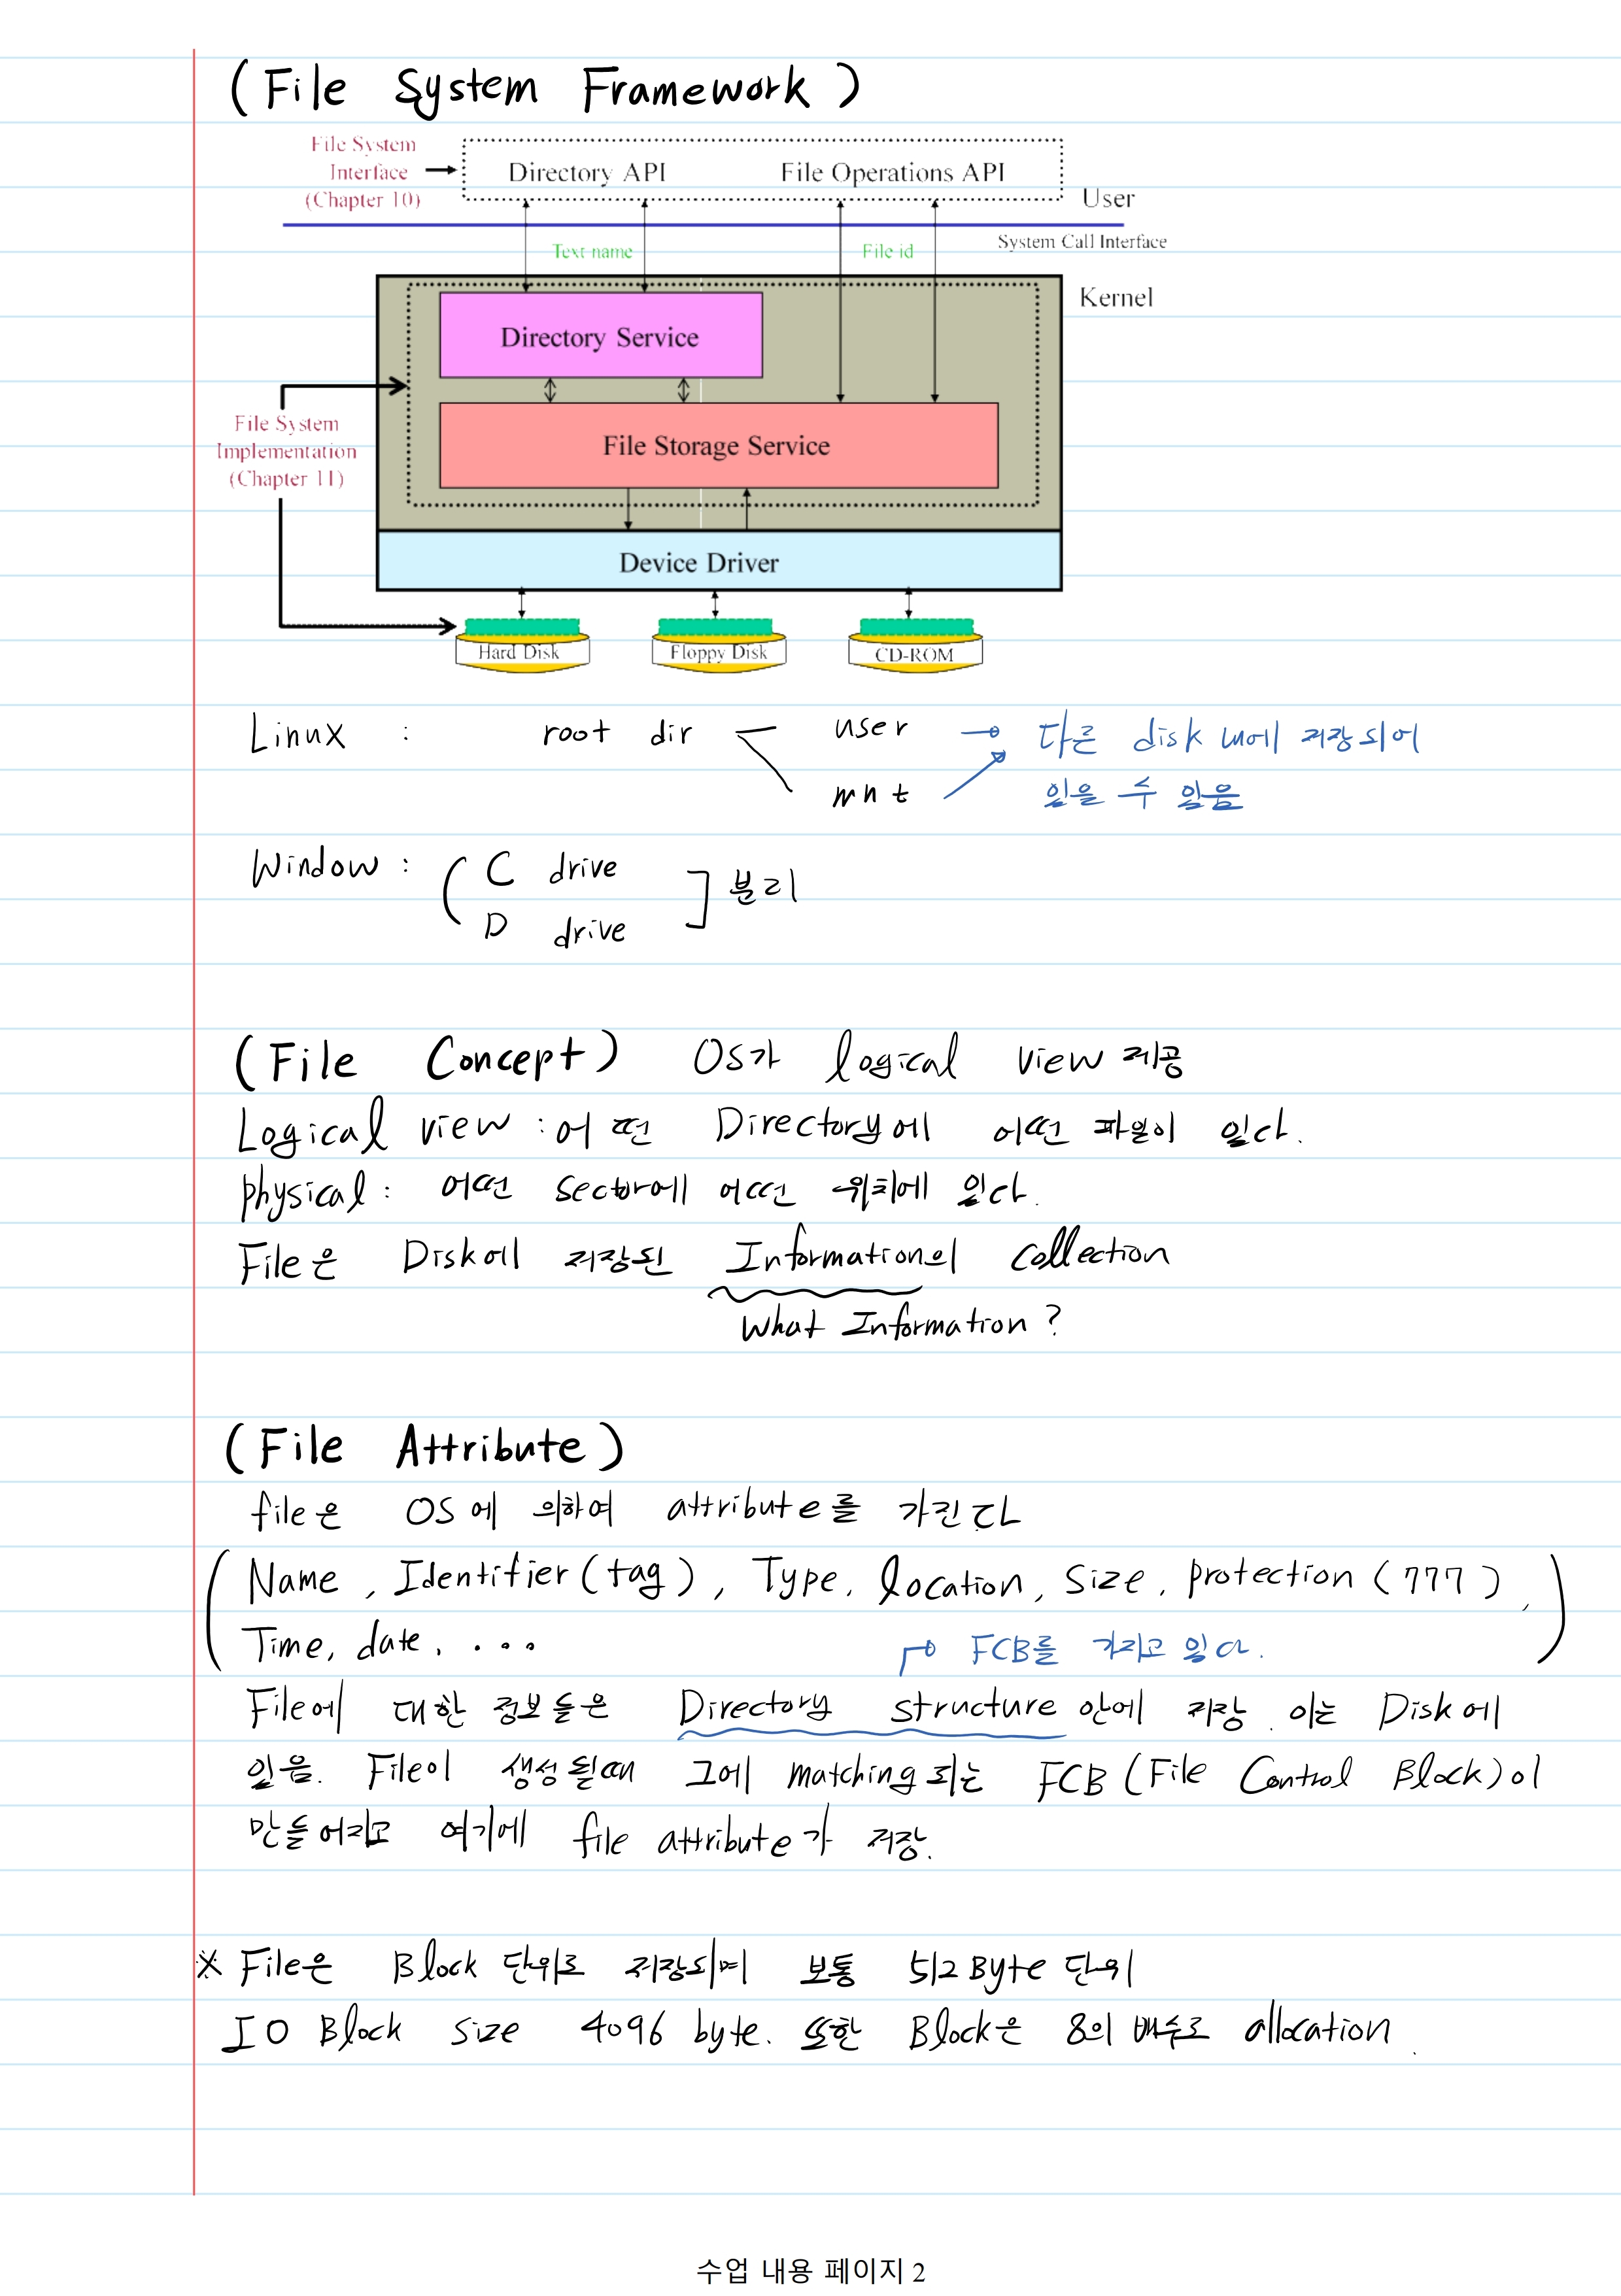 (File System Framework)
File System
Interface
(Chapter 10)
Directory API File Operations API
User
System Call Interface
Text name File id
Kernel
Directory Service
File System
Implementation
(Chapter 11)
File Storage Service
Device Driver
Hard Disk Floppy Disk CD-ROM
Linux : root dir user 다른 disk 내에 저장되어
mnt 있을 수 있음
Window : ( C drive ] 분리
D drive
(File Concept) OS가 logical view 제공
Logical view : 어떤 Directory에 어떤 파일이 있다.
physical : 어떤 sector에 어떤 위치에 있다.
File은 Disk에 저장된 Information의 collection
What Information?
(File Attribute)
file은 OS에 의하여 attribute를 가진다
( Name, Identifier(tag), Type, location, Size, protection (777),
Time, date, ... )
FCB를 가지고 있다.
File에 대한 정보들은 Directory structure 안에 저장. 이는 Disk에
있음. File이 생성될때 그에 matching되는 FCB (File Control Block)이
만들어지고 여기에 file attribute가 저장.
※ File은 Block 단위로 저장되며 보통 512Byte 단위
IO Block size 4096 byte. 또한 Block은 8의 배수로 allocation.
수업 내용 페이지 2